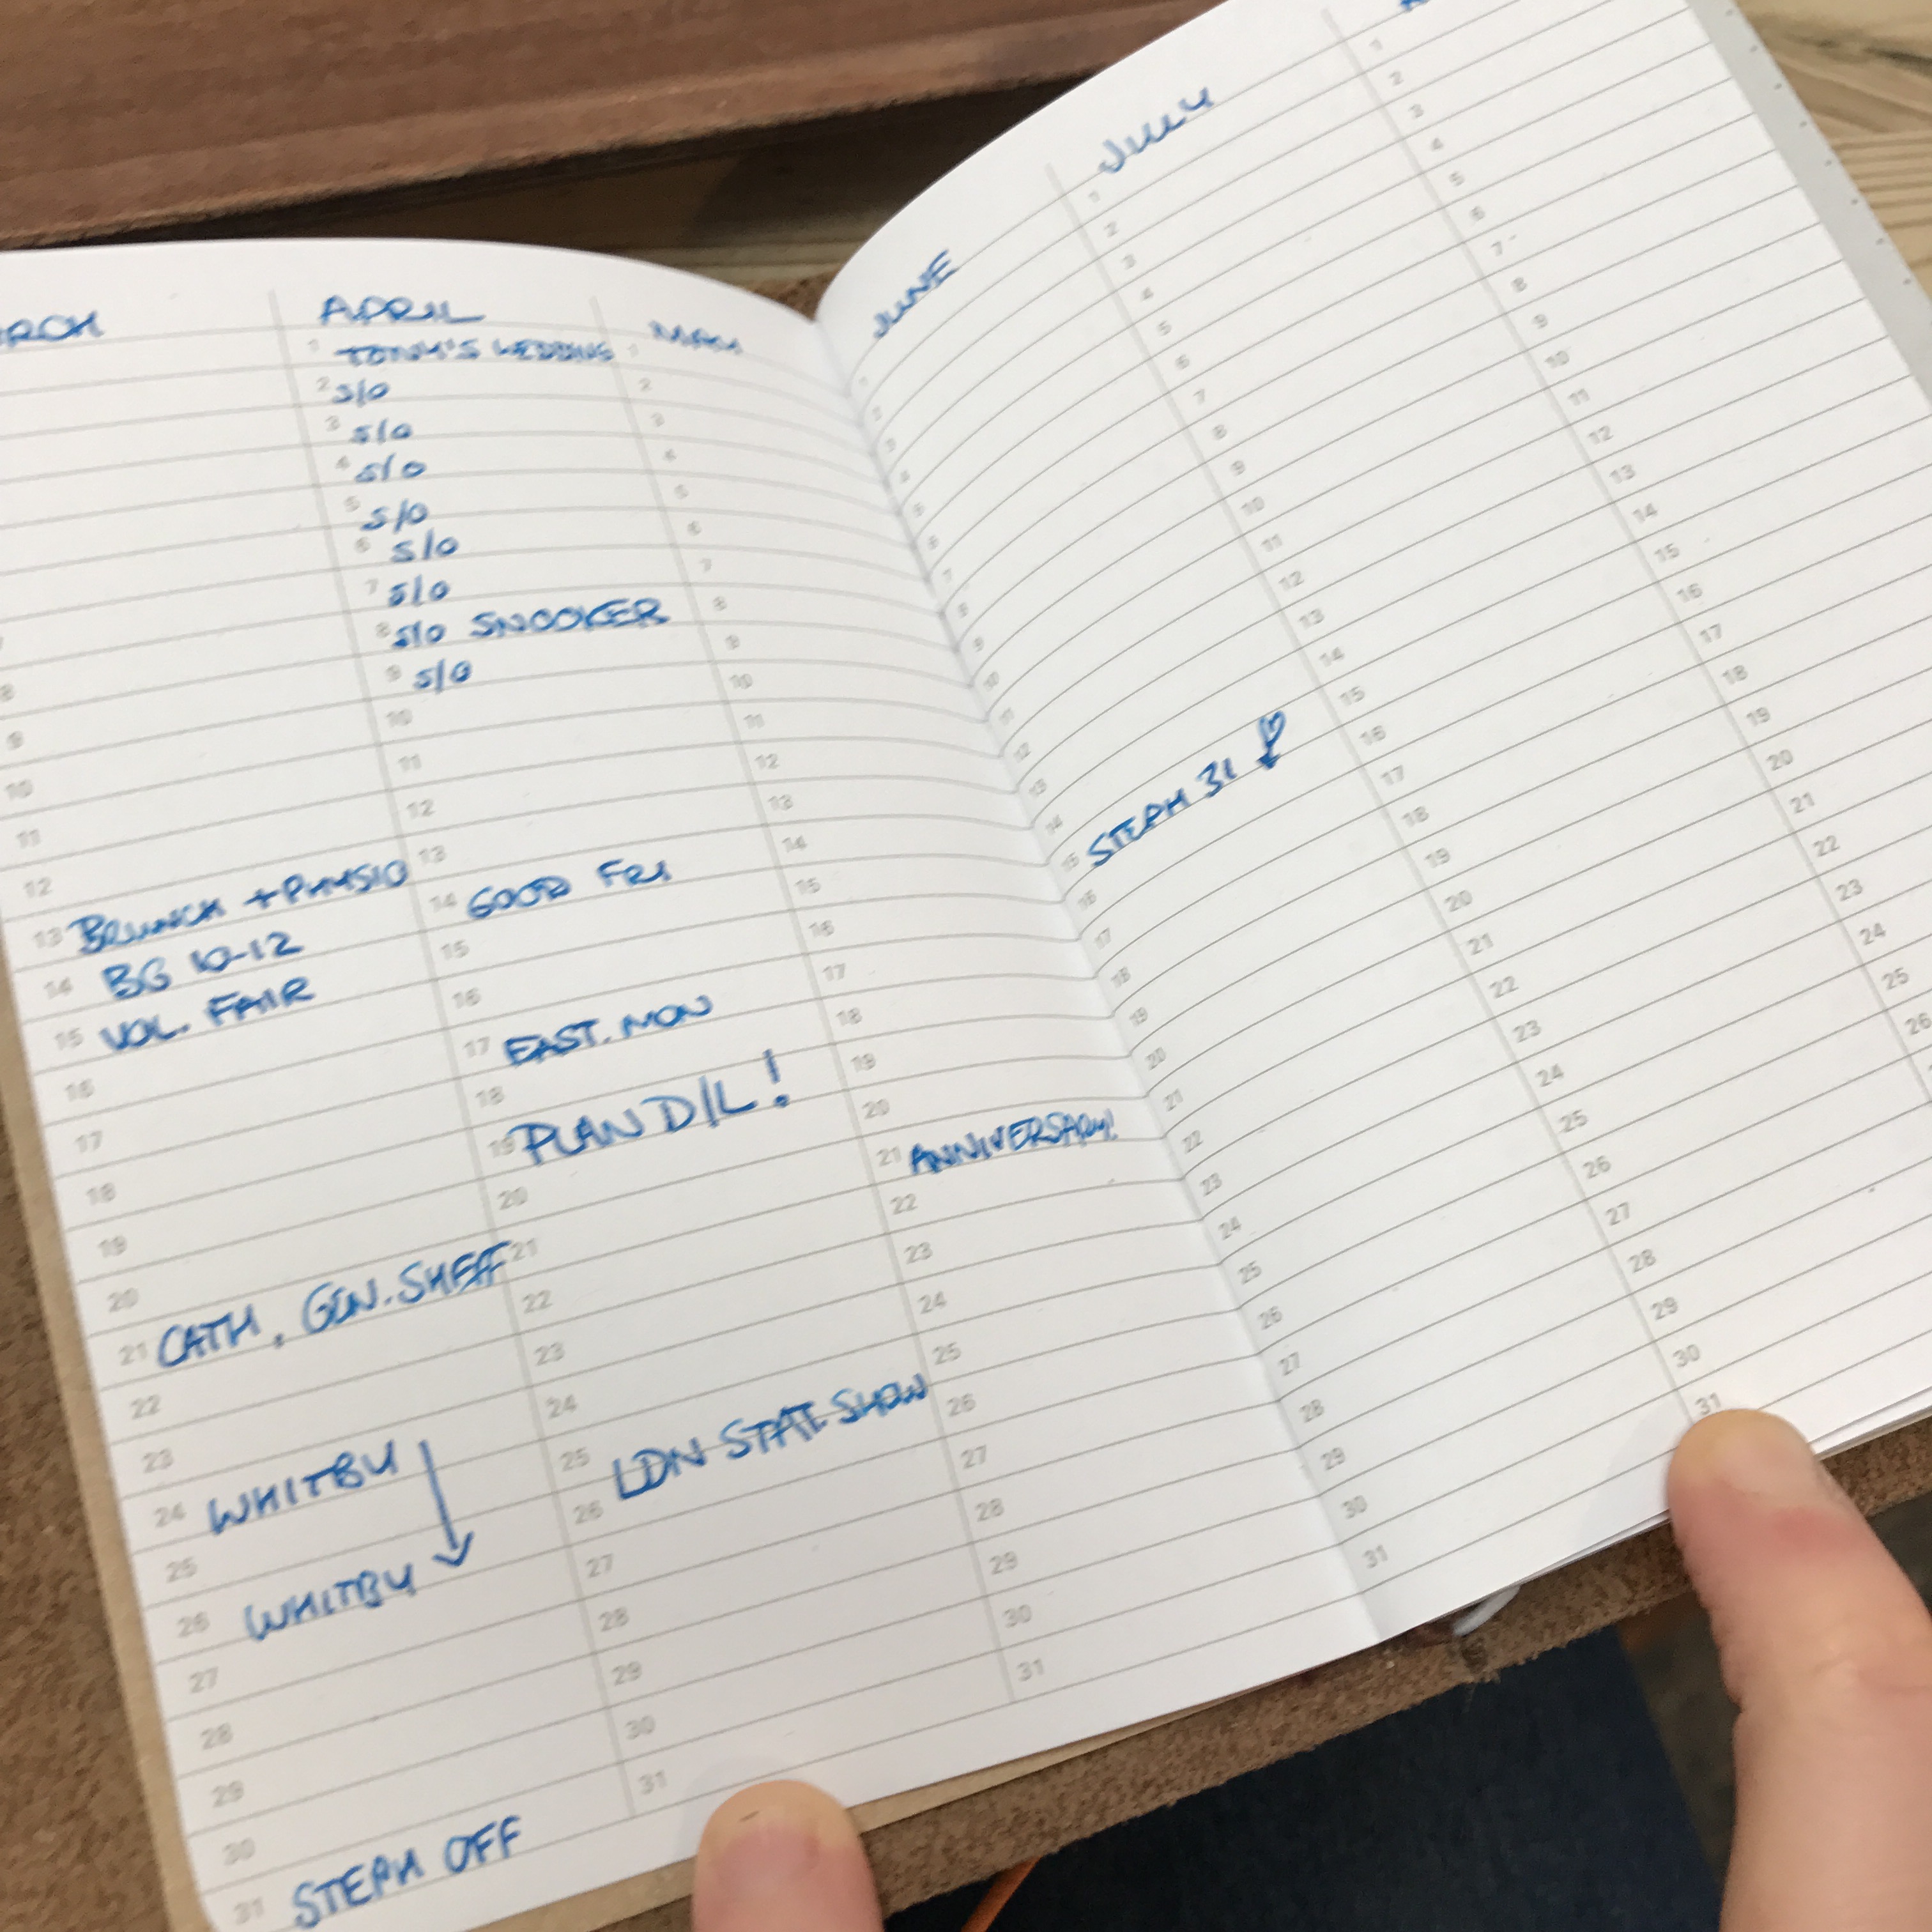 RCH
8
9
10
11
12
13 BRUNCH + PHYSIO
14 BG 10-12
15 VOL. FAIR
16
17
18
19
20
21 CATH. GEN. SHEFF
22
23
24 WHITBY
25
26 WHITBY
27
28
29
30
31 STEPH OFF
APRIL
1 TONY'S WEDDING
2 S/O
3 S/O
4 S/O
5 S/O
6 S/O
7 S/O
8 S/O SNOOKER
9 S/O
10
11
12
13
14 GOOD FRI
15
16
17 EAST. MON
18
19 PLAN D/L!
20
21
22
23
24
25
26 LDN STAT. SHOW
27
28
29
30
31
MAY
1
2
3
4
5
6
7
8
9
10
11
12
13
14
15
16
17
18
19
20
21 ANNIVERSARY!
22
23
24
25
26
27
28
29
30
31
JUNE
1
2
3
4
5
6
7
8
9
10
11
12
13
14
15 STEPH 31
16
17
18
19
20
21
22
23
24
25
26
27
28
29
30
31
JULY
1
2
3
4
5
6
7
8
9
10
11
12
13
14
15
16
17
18
19
20
21
22
23
24
25
26
27
28
29
30
31
1
2
3
4
5
6
7
8
9
10
11
12
13
14
15
16
17
18
19
20
21
22
23
24
25
26
27
28
29
30
31